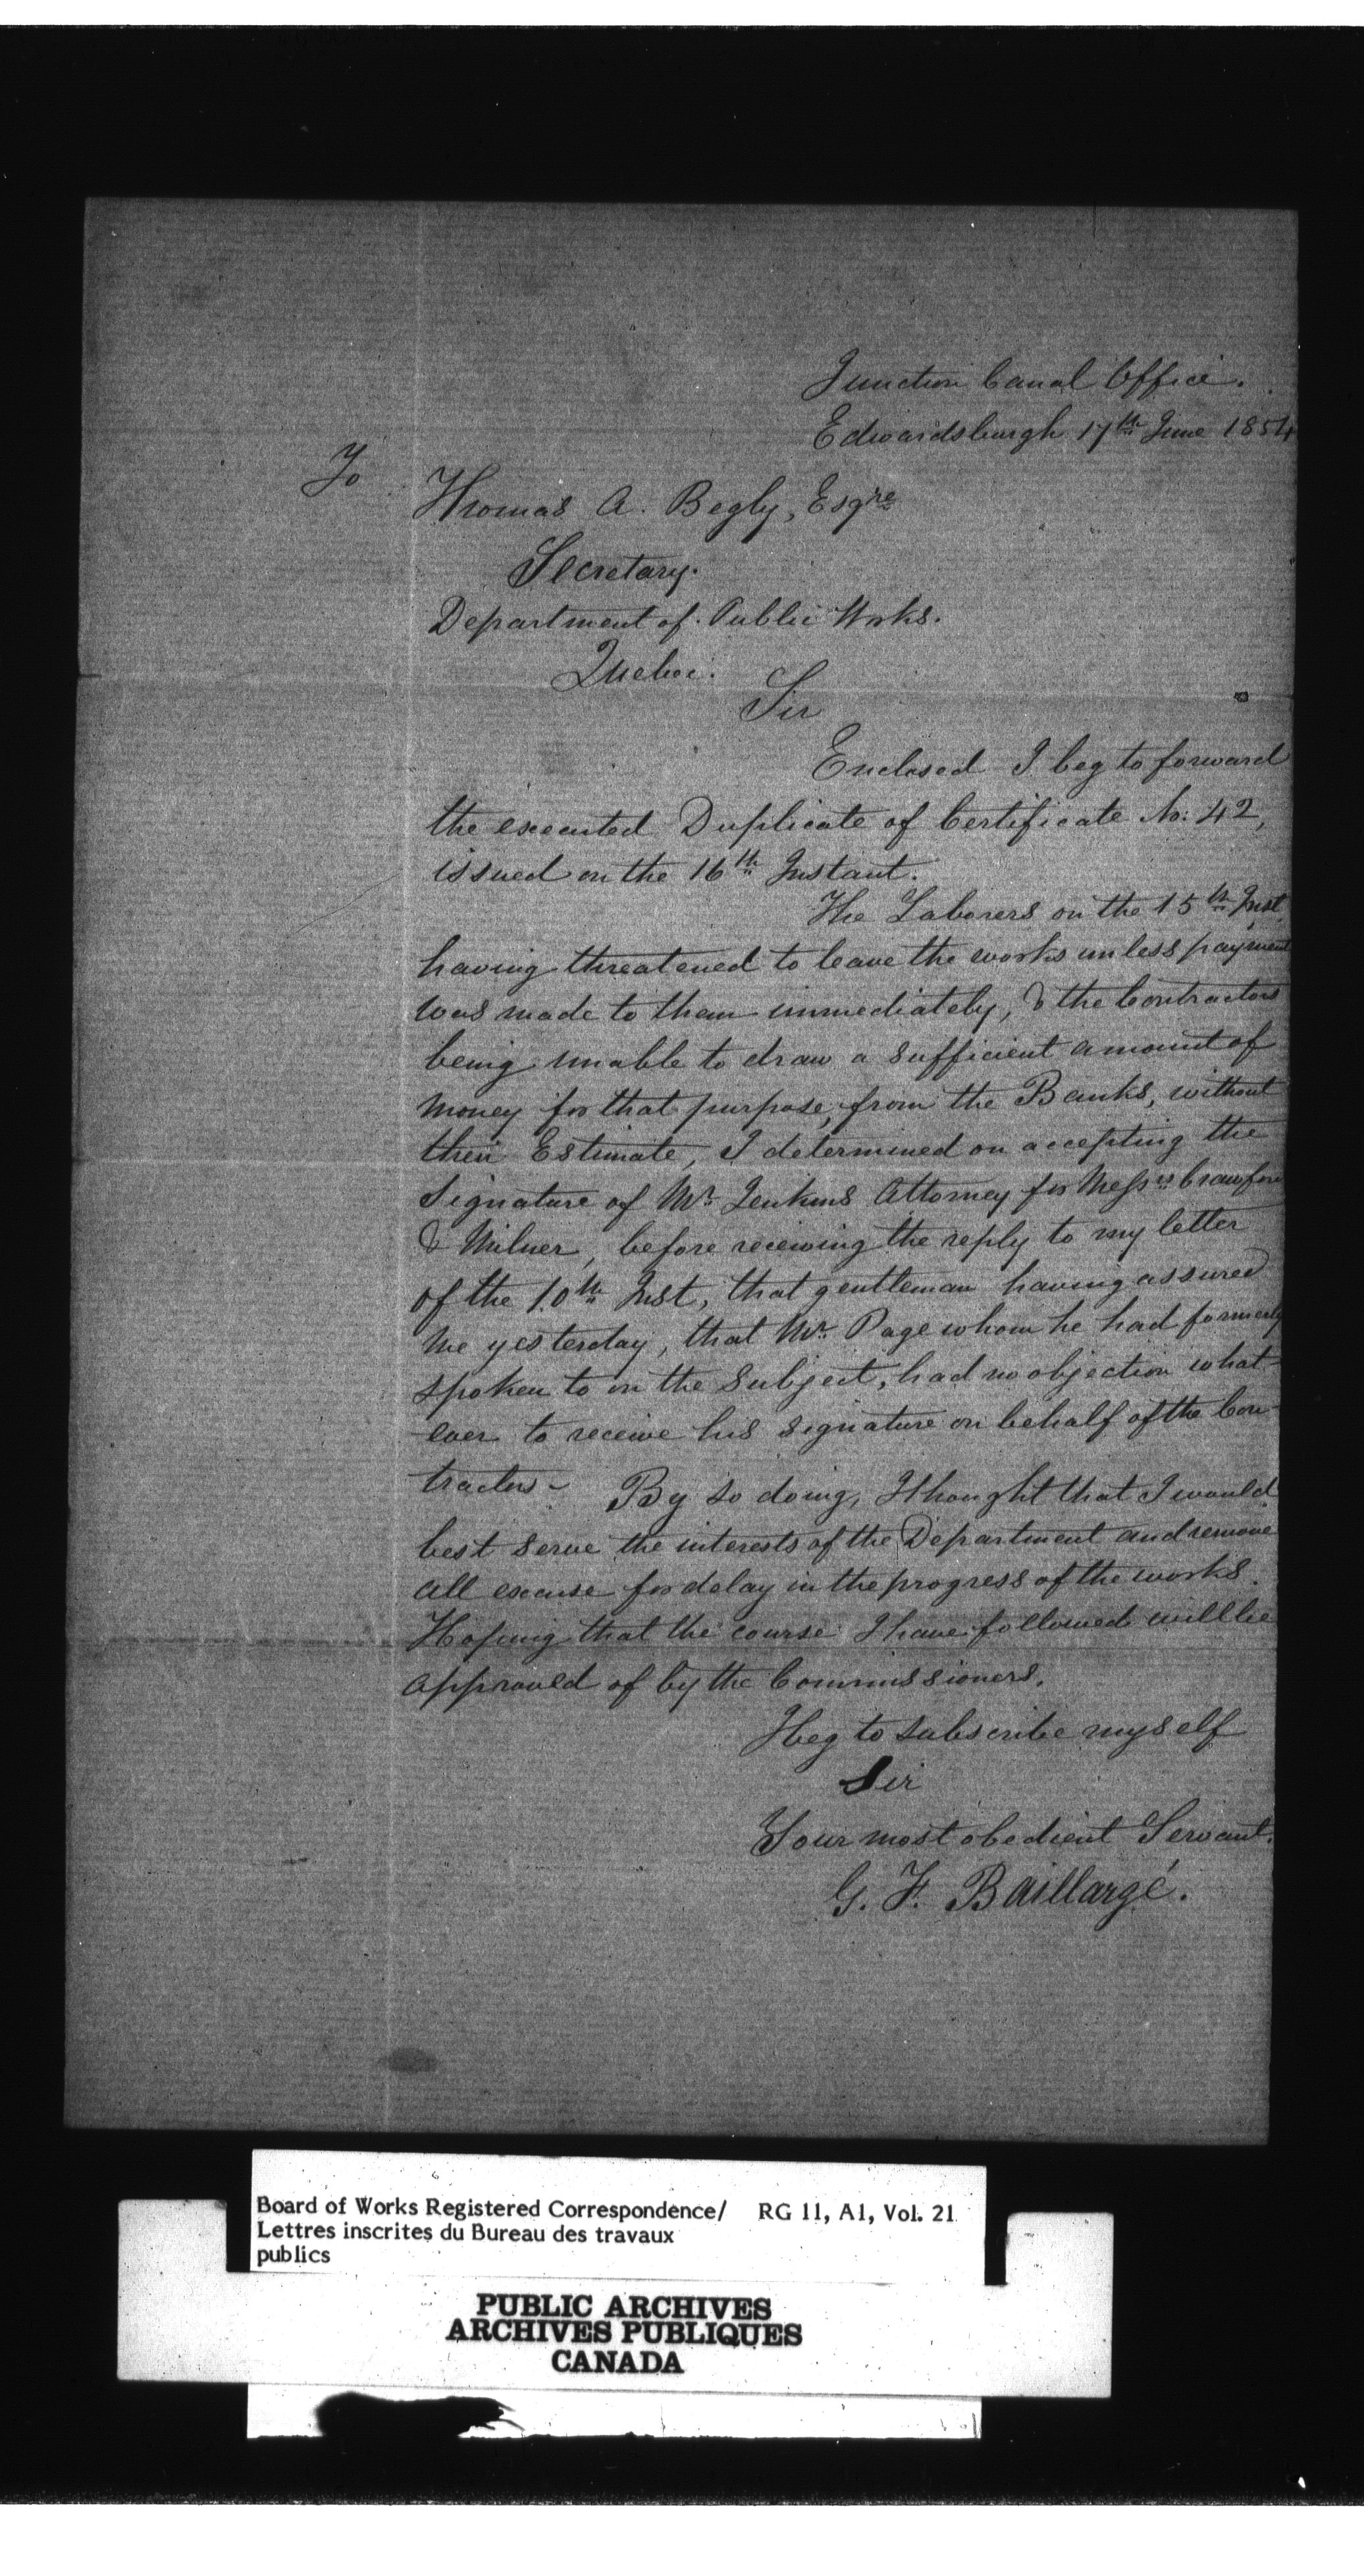 Junction Canal Office.
Edwardsburgh 17th June 1854
To
Thomas A. Begly, Esqre
Secretary.
Department of Public Works.
Quebec.
Sir
Enclosed I beg to forward
the executed Duplicate of Certificate No: 42,
issued on the 16th Instant.
The Laborers on the 15th Inst
having threatened to leave the works unless payment
was made to them immediately, & the Contractors
being unable to draw a sufficient amount of
money for that purpose, from the Banks, without
their Estimate, I determined on accepting the
signature of Mr. Jenkins Attorney for Messrs Crawford
& Milner, before receiving the reply to my letter
of the 10th Inst, that gentleman having assured
me yesterday, that Mr. Page whom he had formerly
spoken to on the subject, had no objection what-
ever to receive his signature on behalf of the Con-
tractors - By so doing, I thought that I would
best serve the interests of the Department and remove
all excuse for delay in the progress of the works.
Hoping that the course I have followed will be
approved of by the Commissioners.
I beg to subscribe myself
Sir
Your most obedient Servant.
G. F. Baillargé.
Board of Works Registered Correspondence/ RG 11, A1, Vol. 21
Lettres inscrites du Bureau des travaux
publics
PUBLIC ARCHIVES
ARCHIVES PUBLIQUES
CANADA